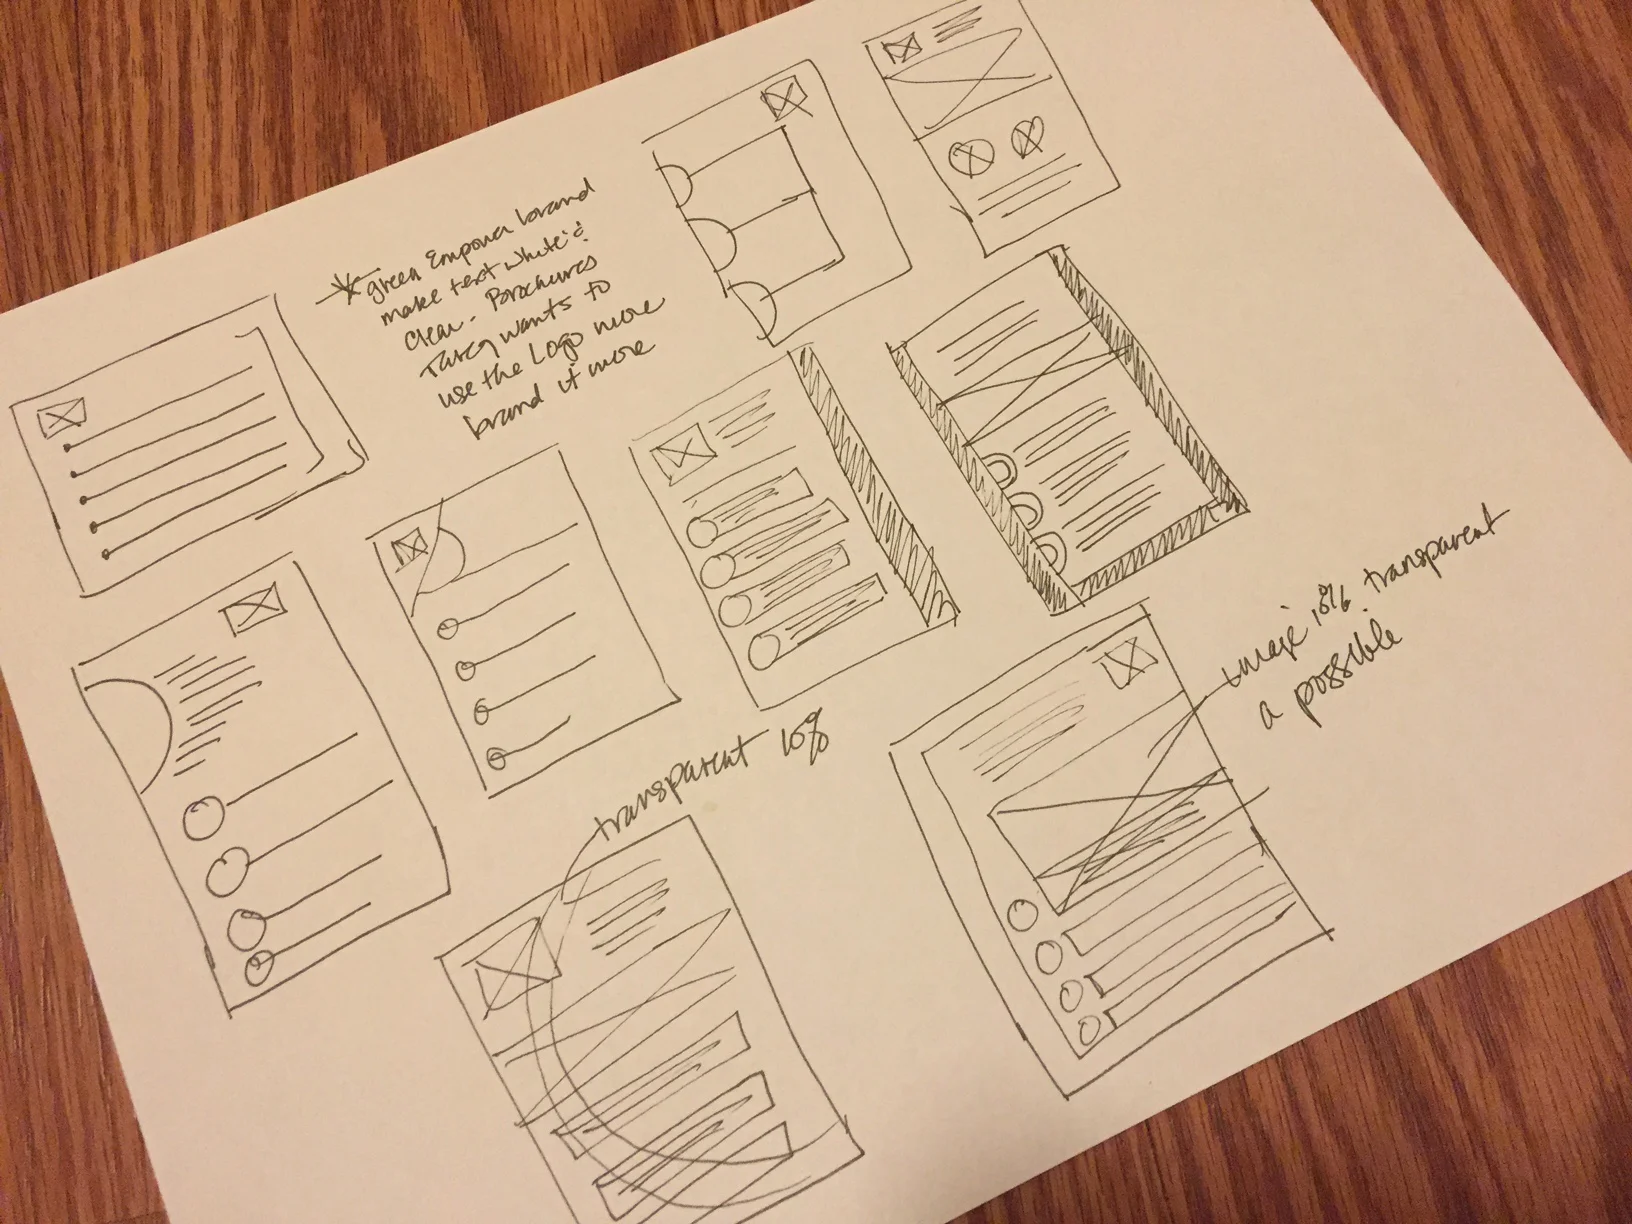 green Empower brand
make text white &
clear. Brochures
wants to
use the Logo more
brand it more
transparent 10%
image 10% transparent
a possible